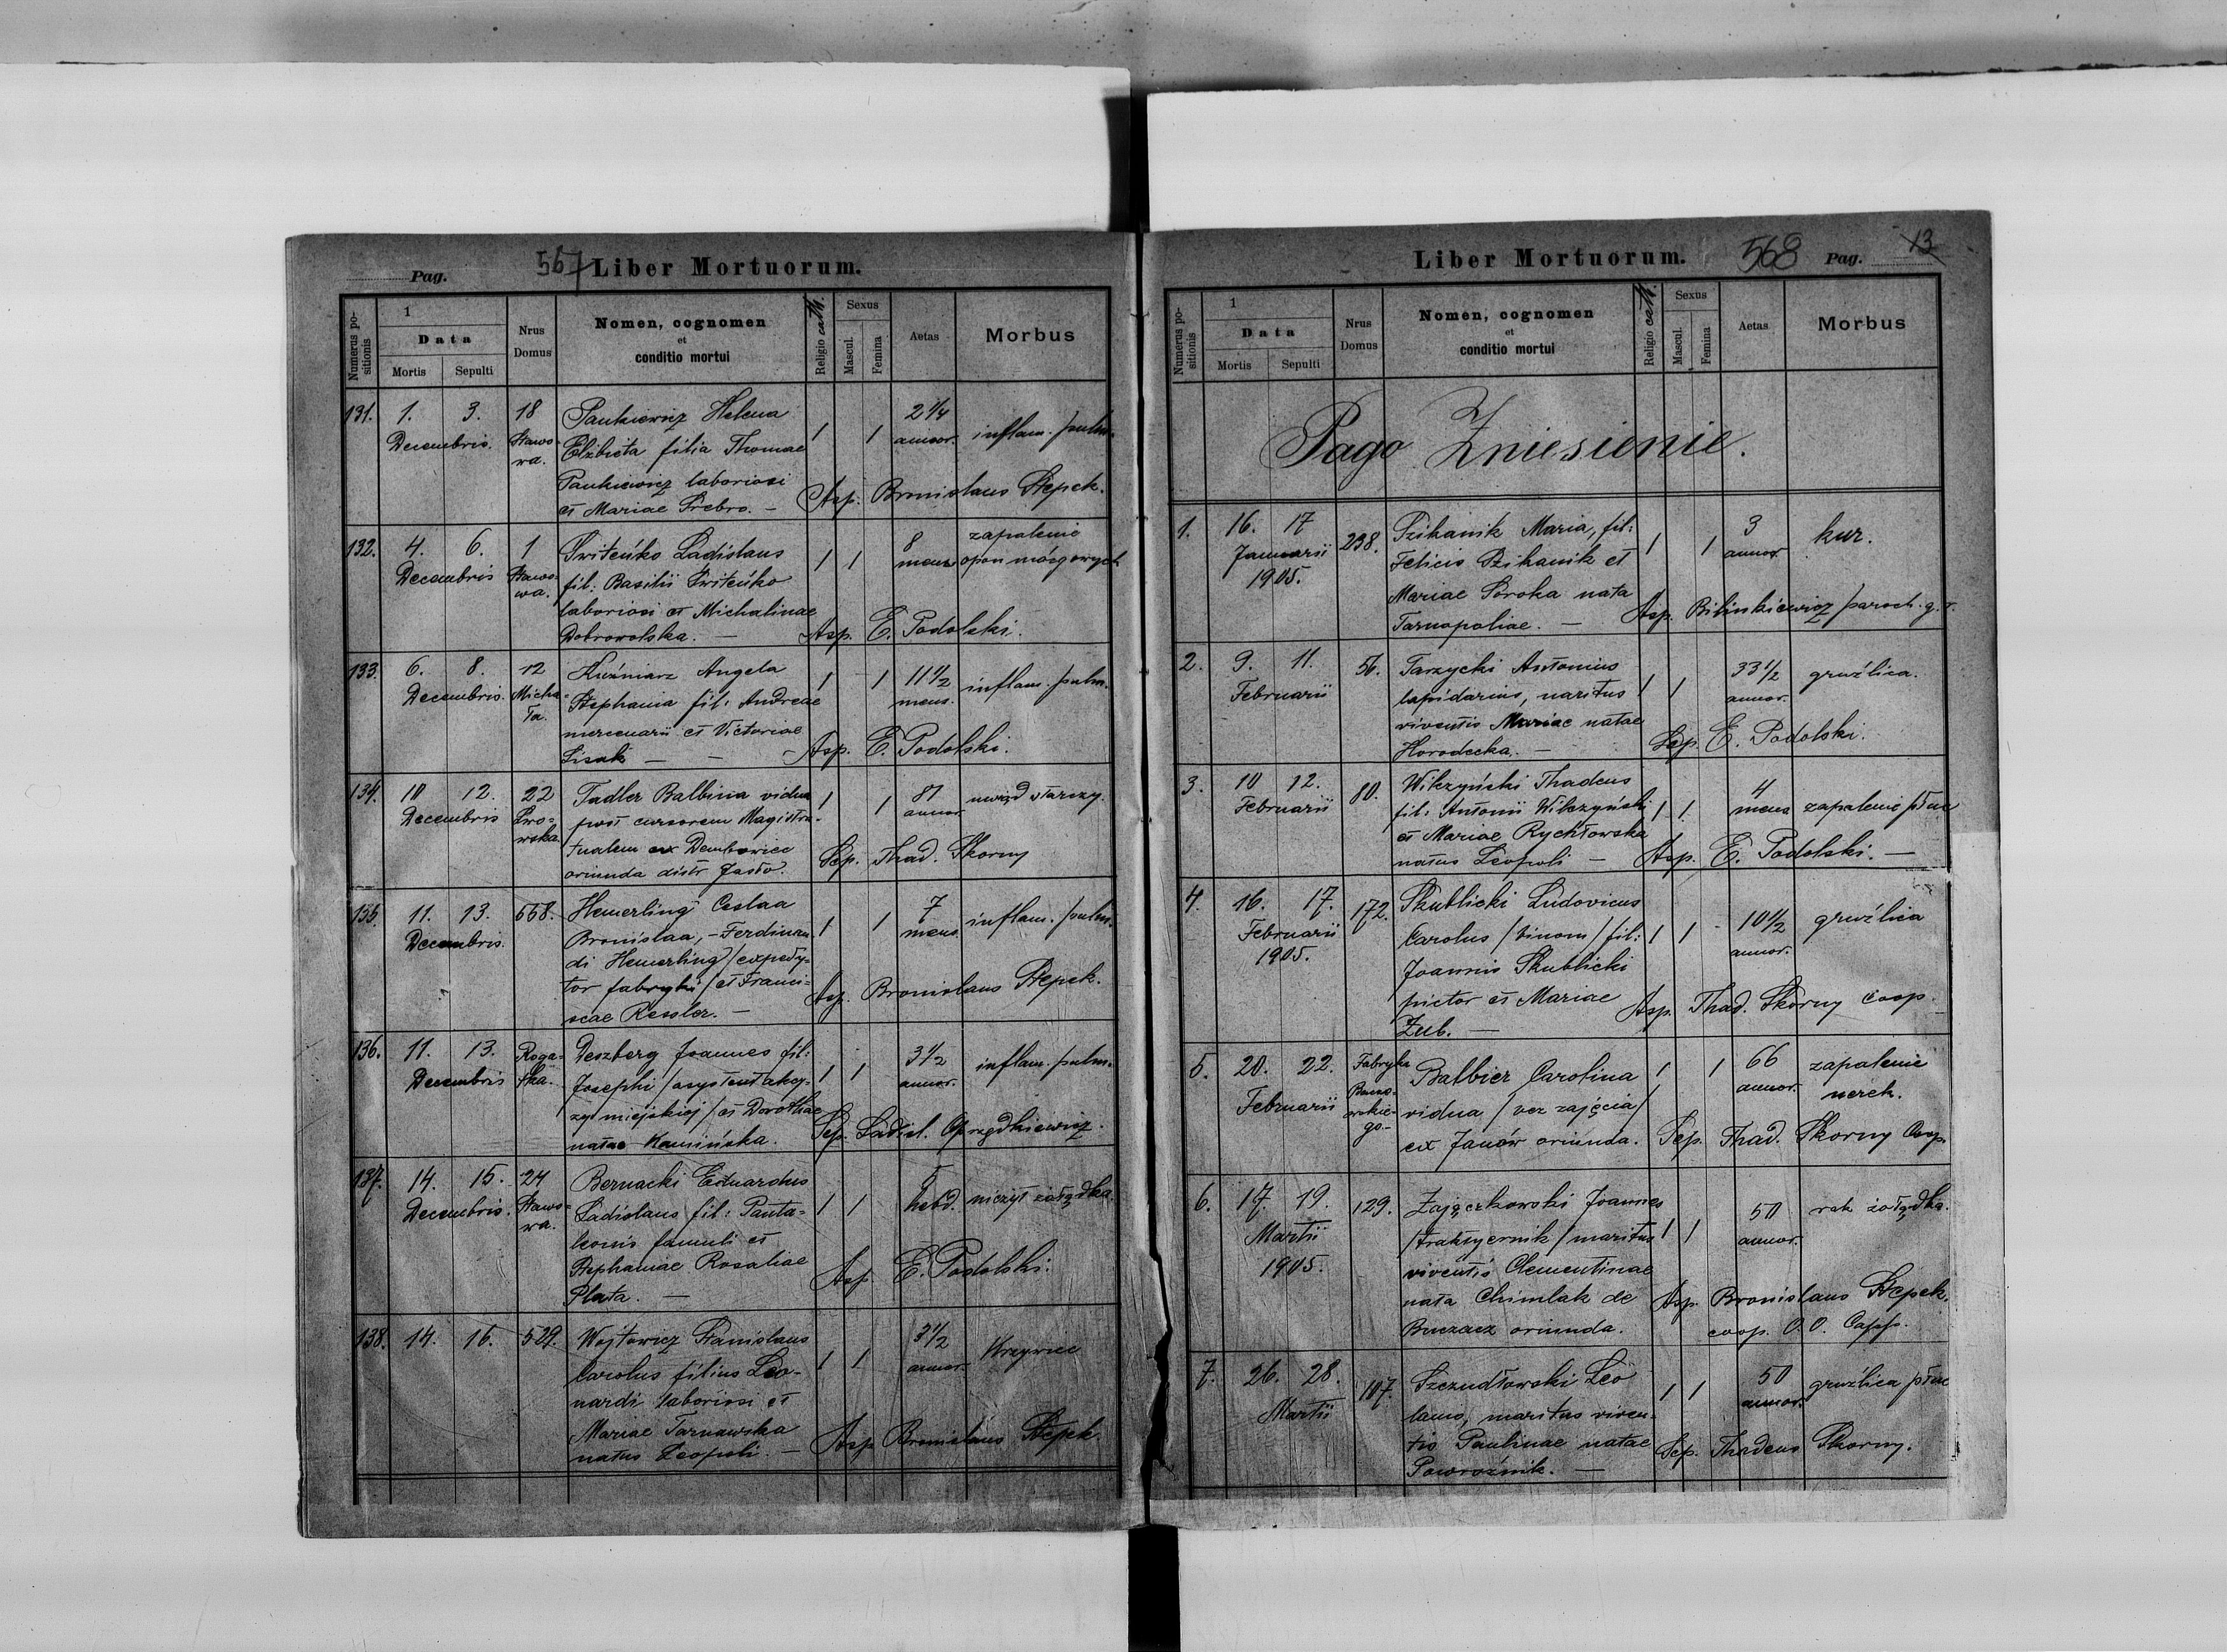 Pag.
567
Liber Mortuorum.
Numerus positionis
1
Data
Mortis
Sepulti
Nrus Domus
Nomen, cognomen
et
conditio mortui
Religio cath.
Sexus
Mascul.
Femina
Aetas
Morbus
131. 1. 3. 18 Pankiewicz Helena 2 1/4
Decembris. Stawo- Elżbieta filia Thomae 1 1 annor. inflam. pulm.
wa. Pankiewicz laboriosi
et Mariae Srebro. — Asp. Bronislaus Stepek.
132. 4. 6. 1 Switeńko Ladislaus 1 1 8 zapalenie
Decembris Stawo- fil: Basilii Switeńko mens opon mózgowych
wa. laboriosi et Michalinae
Dobrowolska. — Asp. E. Podolski.
133. 6. 8. 12 Kuźniarz Angela 1 1 11 1/2 inflam. pulm.
Decembris. Micha- Stephania fil: Andreae mens.
ła. mercenarii et Victoriae
Lisak — — Asp. E. Podolski.
134. 10 12. 22 Tadler Balbina vidua 1 1 81 uwiąd starczy.
Decembris Lwo- post cursorem Magistra- annor.
wska. tualem ex Dembowiec
oriunda distr Jasło. Sep. Thad. Skorny
135. 11. 13. 558. Hemerling Ceslaa 1 1 7 inflam. pulm.
Decembris. Bronislaa, - Ferdinan- mens.
di Hemerling / expedy-
tor fabryki / et Franci-
scae Ressler. — Asp. Bronislaus Stepek.
136. 11. 13. Roga- Deszberg Joannes fil: 1 1 3 1/2 inflam. pulm.
Decembris tka. Josephi / asystent akcy- annor.
zy miejskiej / et Dorothae
natae Kamińska. Sep. Ladisl. Oprzędkiewicz.
137. 14. 15. 24 Bernacki Eduardus 1 1 5 nieżyt żołądka.
Decembris. Stawo- Ladislaus fil: Panta- hebd.
wa. leonis famuli et
Stephaniae Rosaliae
Plata. — Asp. E. Podolski.
138. 14. 16. 529. Wojtowicz Stanislaus 1 1 3 1/2 Krzywice
Carolus filius Leo- annor.
nardi laboriosi et
Mariae Tarnawska
natus Leopoli. — Asp. Bronislaus Stepek
Liber Mortuorum.
568
Pag. 13
Numerus positionis
1
Data
Mortis
Sepulti
Nrus Domus
Nomen, cognomen
et
conditio mortui
Religio cath.
Sexus
Mascul.
Femina
Aetas
Morbus
Pago Zniesienie.
1. 16. 17 238. Dzikanik Maria, fil: 1 1 3 kur.
Januarii Felicis Dzikanik et annor.
1905. Mariae Soroka nata
Tarnopoliae. — Asp. Bilinkiewicz paroch. g. r.
2. 9. 11. 56. Tarzycki Antonius 1 1 33 1/2 gruźlica.
Februarii lapidarius, maritus annor.
viventis Mariae natae
Horodecka. — Sep. E. Podolski.
3. 10 12. 80. Wilczyński Thadeus 1 1 4 zapalenie płuc
Februarii fil: Antonii Wilczyński mens
et Mariae Rychłowska
natus Leopoli — Asp. E. Podolski. —
4. 16. 17. 172. Skublicki Ludovicus 1 1 10 1/2 gruźlica
Februarii Carolus / binom / fil: annor.
1905. Joannis Skublicki
pictor et Mariae
Zub. — Asp. Thad. Skorny Coop.
5. 20. 22. Fabryka Balbier Carolina 1 1 66 zapalenie
Februarii vidua / bez zajęcia / annor. nerek.
go- ex Janów oriunda. Sep. Thad. Skorny Coop.
6. 17. 19. 129. Zajączkowski Joannes 1 1 50 rak żołądka.
Martii / traktyernik / maritus annor.
1905. viventis Clementinae
nata Chimlak de
Buczacz oriunda. Asp. Bronislaus Stepek.
coop. O. O. Capp.
7. 26. 28. 107. Szczudłowski Leo 1 1 50 gruźlica płuc
Martii lanio, maritus viven- annor.
tis Paulinae natae
Powroźnik. — Sep. Thadeus Skorny.